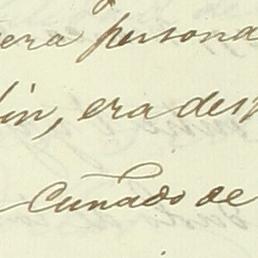 era persona
lin, era des
Cuñado de